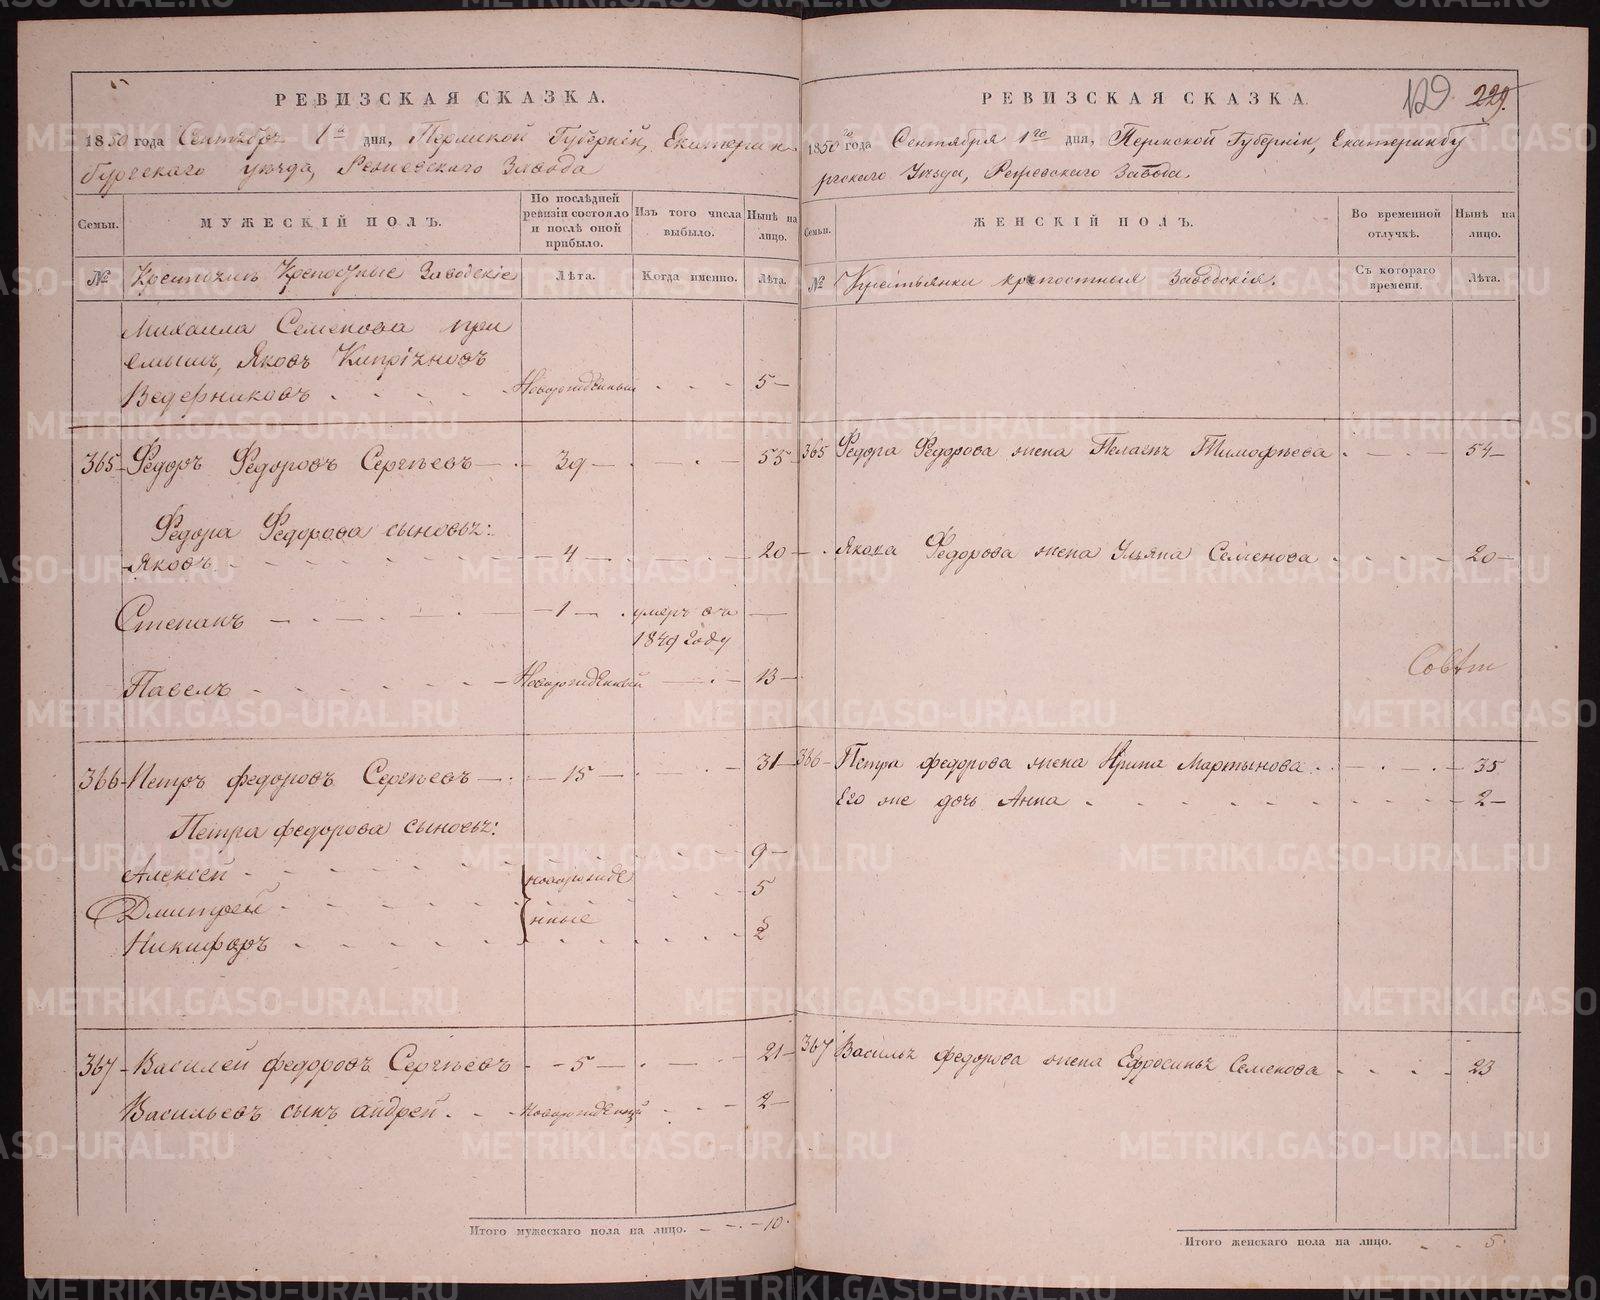 РЕВИЗСКАЯ СКАЗКА.
1850 года Сентября 1го дня, Пермской Губерніи, Екатерин
бургскаго уѣзда, Режевскаго Завода
Семьи.
МУЖЕСКІЙ ПОЛЪ.
По послѣдней
ревизіи состояло
и послѣ оной
прибыло.
Изъ того числа
выбыло.
Нынѣ на
лицо.
№
Крестьянъ Крепостные Заводскіе
Лѣта.
Когда именно.
Лѣта.
Михаила Семенова при
емышъ, Яковъ Кипріановъ
Ведерниковъ Новорожденный 5
365 Федоръ Федоровъ Сергѣевъ 39 55
Федора Федорова сыновья:
Яковъ 4 20
Степанъ 1 умеръ въ
1849 году
Павелъ Новорожденный 13
366 Петръ федоровъ Сергѣевъ 15 31
Петра федорова сыновья:
Алексей 9
новорожде
Дмитрей 5
нные
Никифоръ 2
367 Василей федоровъ Сергѣевъ 5 21
Васильевъ сынъ андрей Новорожденный 2
Итого мужескаго пола на лицо. 10
РЕВИЗСКАЯ СКАЗКА
129 229.
1850го года Сентября 1го дня, Пермской Губерніи, Екатеринбу
ргскаго Уезда, Режевскаго Завода.
Семьи.
ЖЕНСКІЙ ПОЛЪ.
Во временной
отлучкѣ.
Нынѣ на
лицо.
№
Крестьянки крѣпостныя Заводскія.
Съ котораго
времени.
Лѣта.
365 Федора Федорова жена Пелагея Тимофѣева 54
Якова Федорова жена Ульяна Семенова 20
366 Петра федорова жена Ирина Мартынова 35
Его же дочь Анна 2
367 Василья федорова жена Ефросинья Семенова 23
Итого женскаго пола на лицо. 5
METRIKI.GASO-URAL.RU